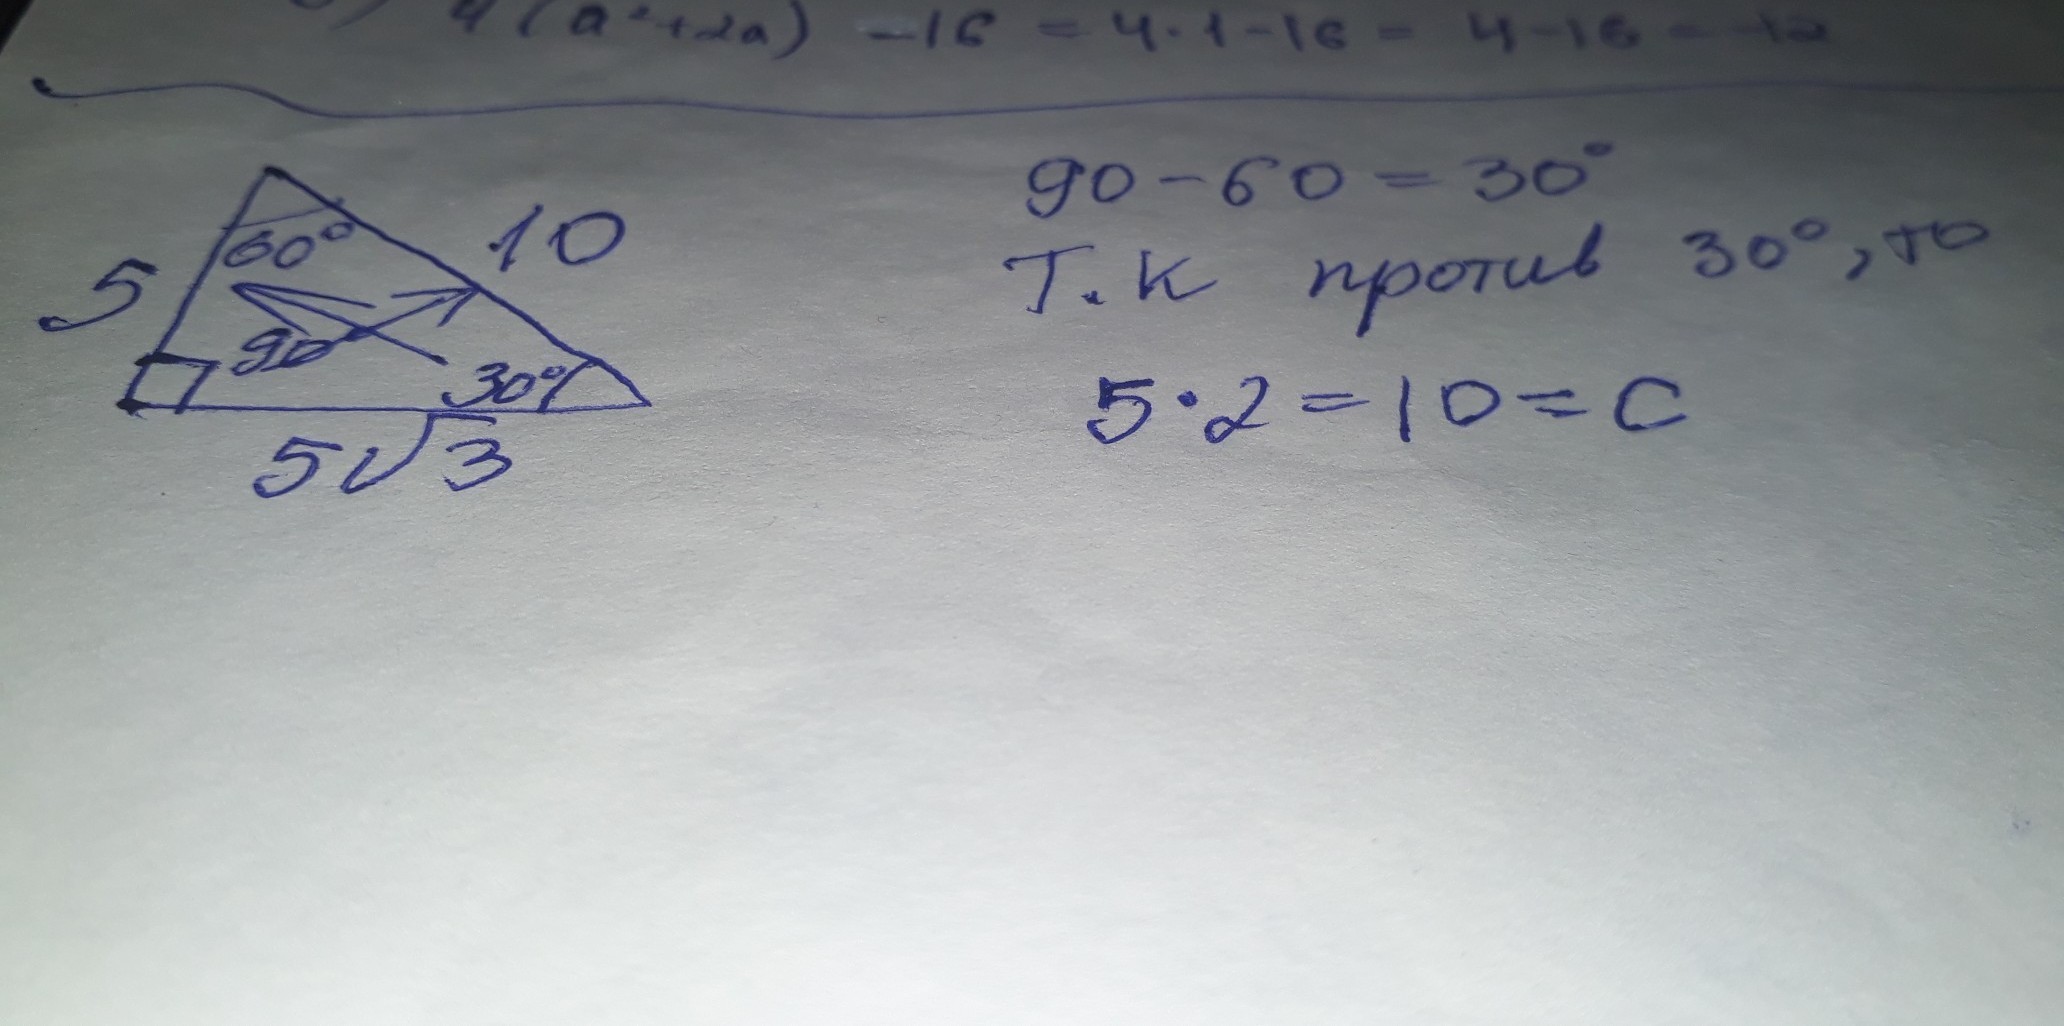 4(a²+2a) -16 = 4·1-16 = 4-16 = -12
90-60=30°
Т.к против 30°, то
5·2=10=c
60°
10
5
90
30°
5√3